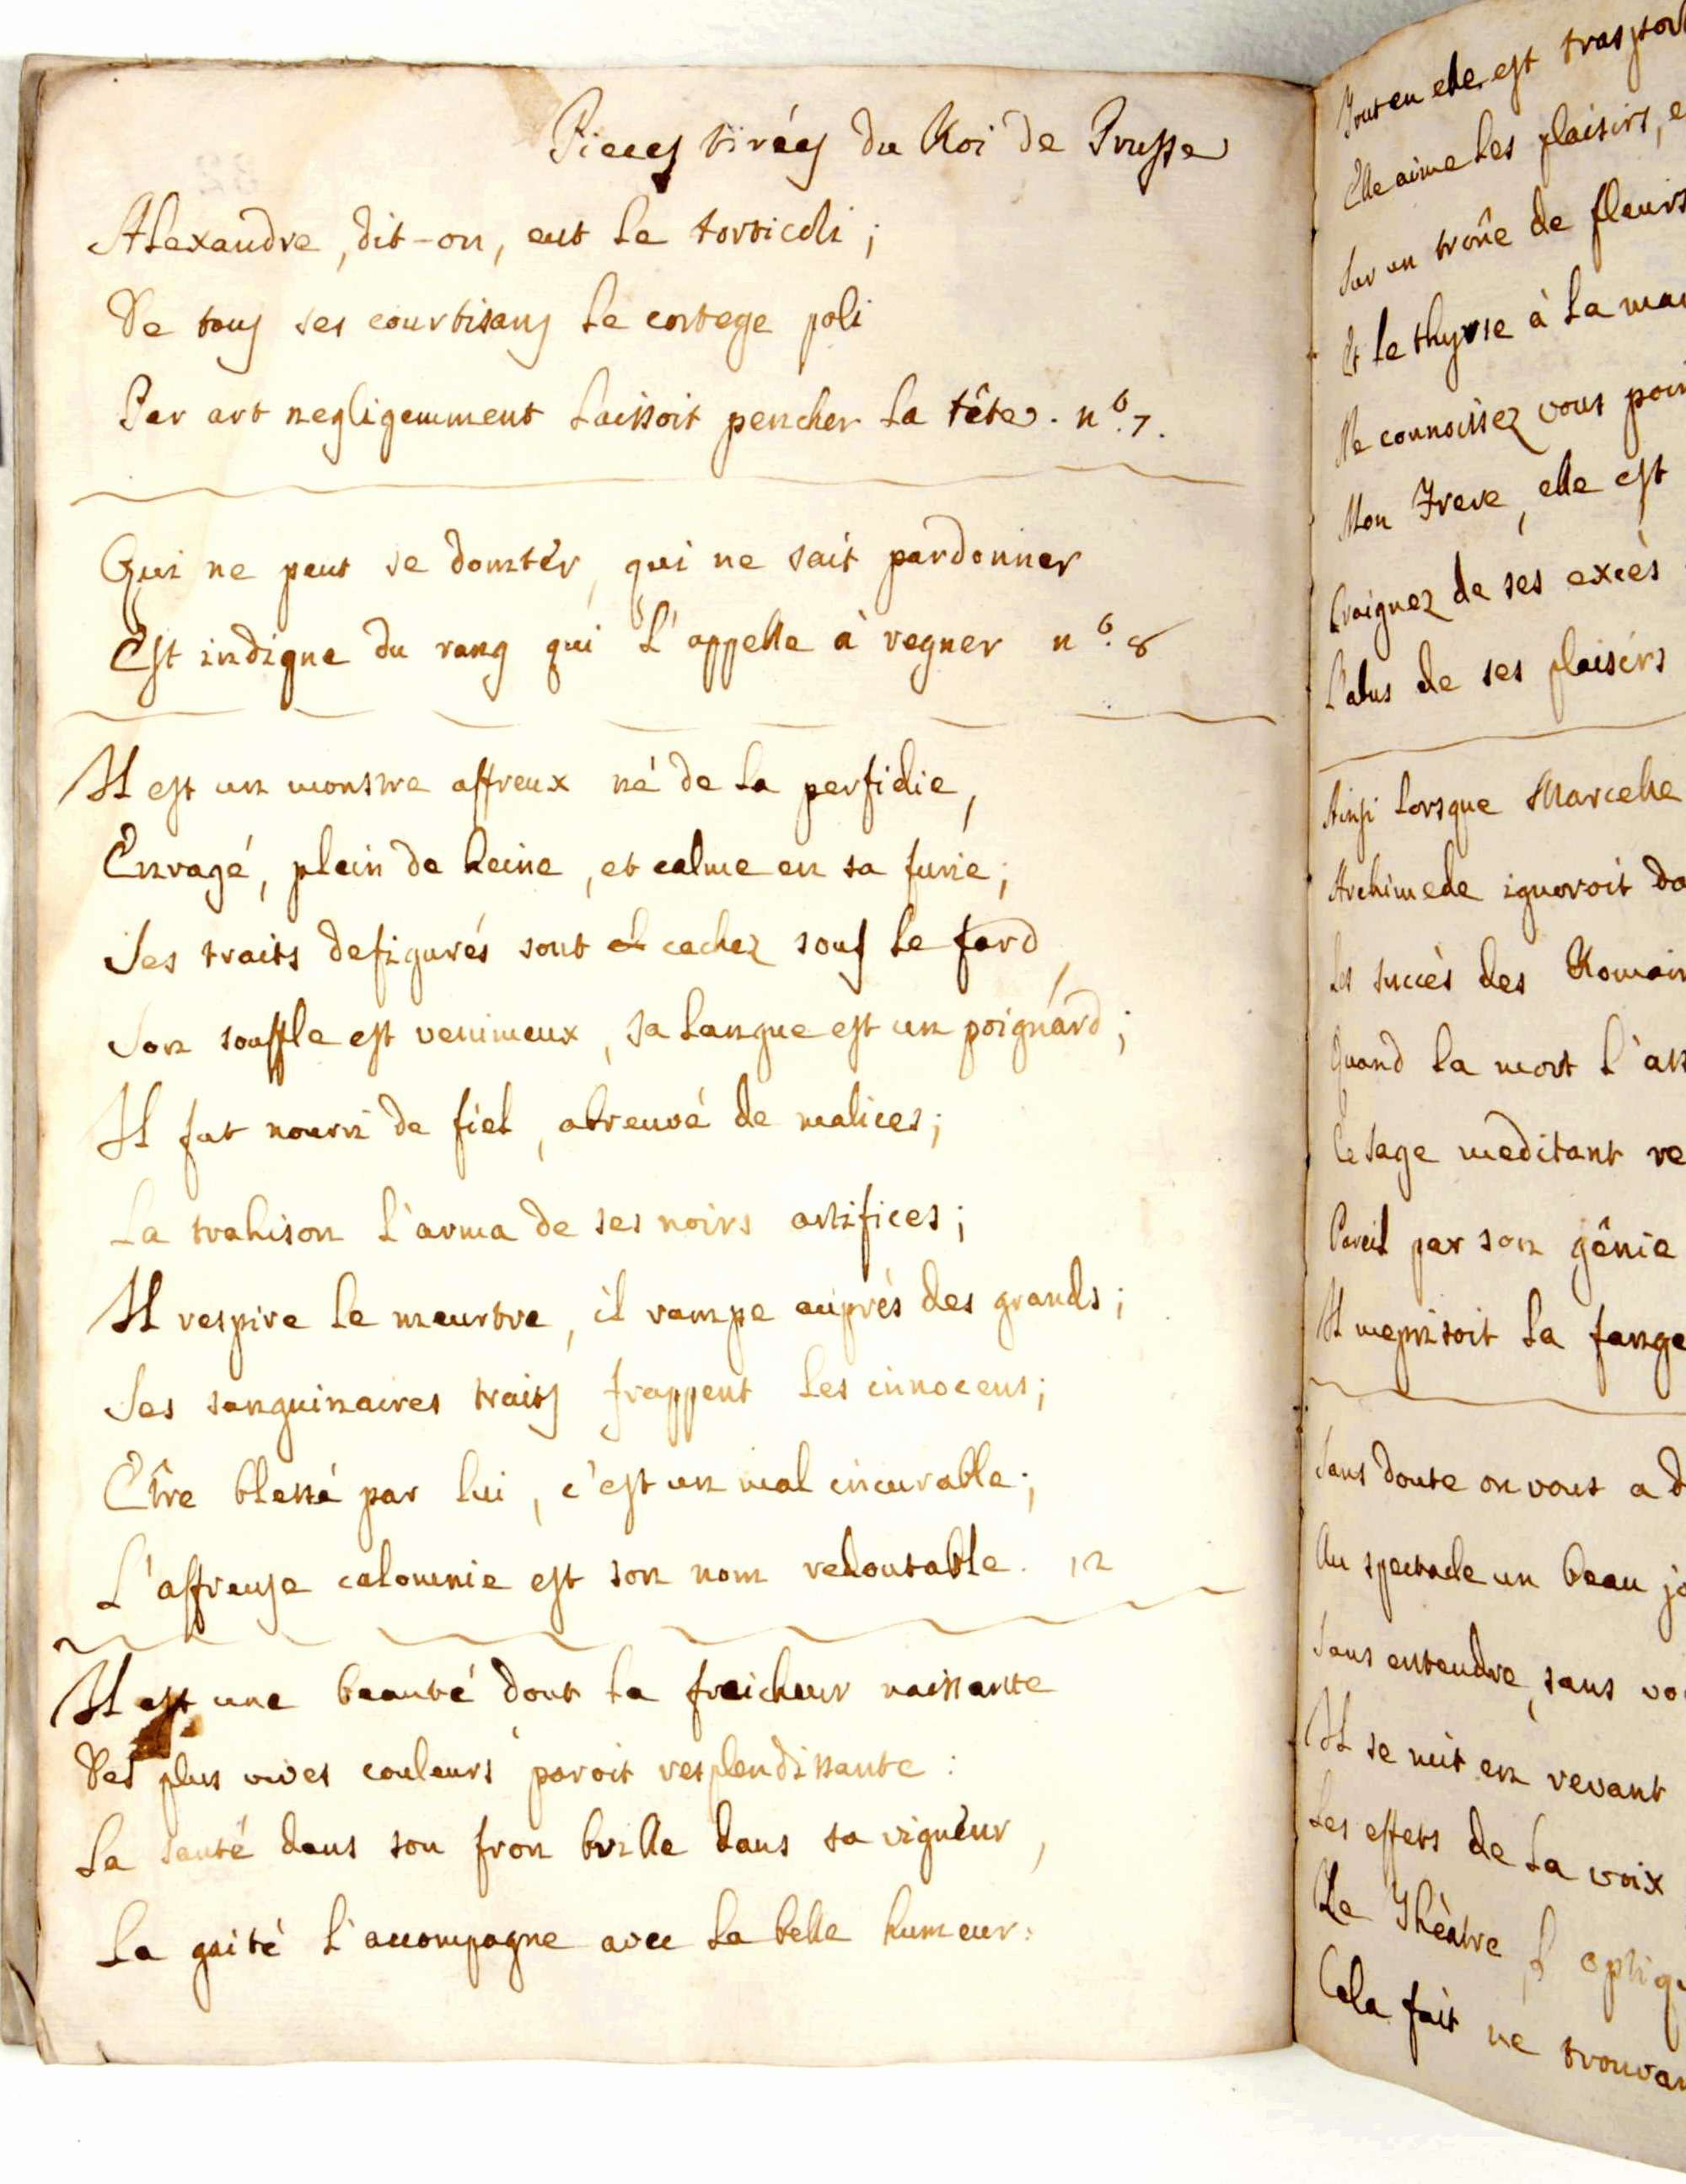 Pieces tirées du Roi de Prusse
Alexandre, dit-on, eut le torticoli ;
De tous ses courtisans le cortege poli
Par art negligemment laissoit pencher la tête. n.º 7.
Qui ne peut se domter, qui ne sait pardonner
Est indigne du rang qui l'appelle à regner n.º 8
Il est un monstre affreux né de la perfidie,
Enragé, plein de heine, et calme en sa furie ;
Ses traits defigurés sont cachez sous le fard,
Son souffle est venimeux, sa langue est un poignard ;
Il fut nourri de fiel, abreuvé de malices ;
La trahison l'arma de ses noirs artifices ;
Il respire le meurtre, il rampe auprès des grands ;
Ses sanguinaires traits frappent les innocens ;
Etre blessé par lui, c'est un mal incurable ;
L'affreuse calomnie est son nom redoutable. 12
Il est une beauté dont la fraicheur naissante
Des plus vives couleurs paroit resplendissante :
La santé dans son fron brille dans sa vigueur,
La gaité l'accompagne avec la belle humeur :
Tout en elle est
Elle aime les plaisirs, e
Sur un trône de fleurs
Et le thyrse à la mai
Ne connoissez vous poin
Mon Frere, elle est
Craignez de ses excès
L'abus de ses plaisirs
Ainsi lorsque Marcelle
Archimede ignoroit da
Les succès des Romain
Quand la mort l'
Ce sage meditant re
Pareil par son génie
Il meprisoit la fange
Sans doute on vous a d
Au spectacle un beau jo
Sans entendre, sans vo
Il se mit en revant
Les effets de la voix
Le Thèatre, l'optiqu
Cela fait ne trouvan